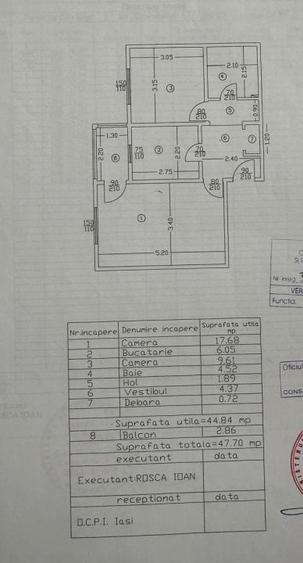 3.05
150
110
3.15
3
2.10
4
2.15
70
210
5
0.90
80
210
1.30
2.20
8
75
110
2
2.20
70
210
6
7
1.20
2.75
2.40
90
210
80
210
90
210
150
110
1
3.40
5.20
Nr.incapere Denumire incapere Suprafata utila
mp
1 Camera 17.68
2 Bucatarie 6.05
3 Camera 9.61
4 Baie 4.52
5 Hol 1.89
6 Vestibul 4.37
7 Debara 0.72
Suprafata utila=44.84 mp
8 Balcon 2.86
Suprafata totala=47.70 mp
executant data
Executant:ROSCA IOAN
receptionat data
O.C.P.I. Iasi
Nr inreg.
VER
Functia
Oficiul
CONS